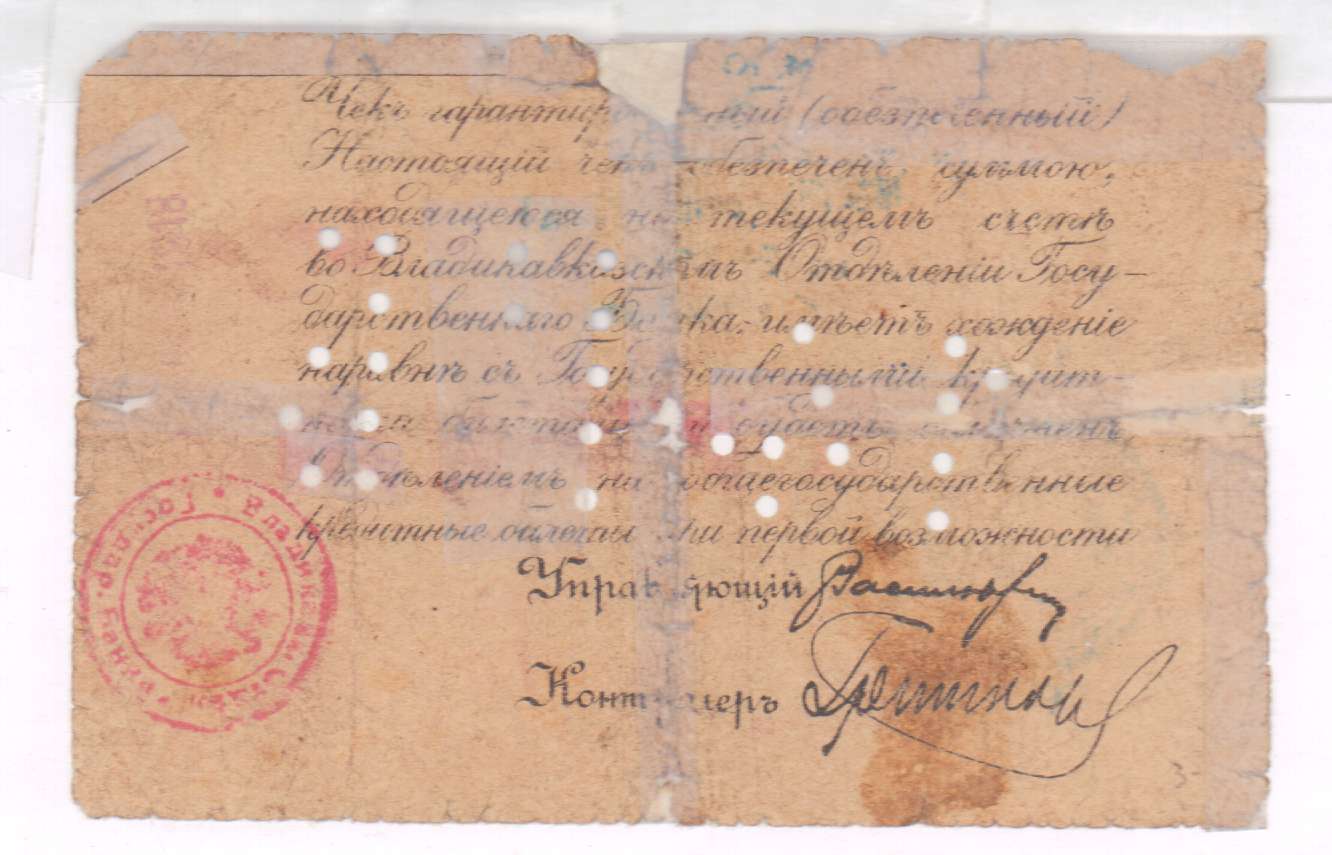 Чекъ гарантиро ный (обезпеченный)
Настоящій чекъ обезпеченъ суммою,
находящеюся на текущемъ счетѣ
во Владикавказскомъ Отдѣленіи Госу-
дарственнаго Банка, имѣетъ хожденіе
наравнѣ съ Государственными кредит-
ными билетами и будетъ обмѣненъ
Отдѣленіемъ на общегосударственные
кредитные билеты при первой возможности
Управляющій
Контролеръ
Владикавказ. Отдѣл. Государ. Банка